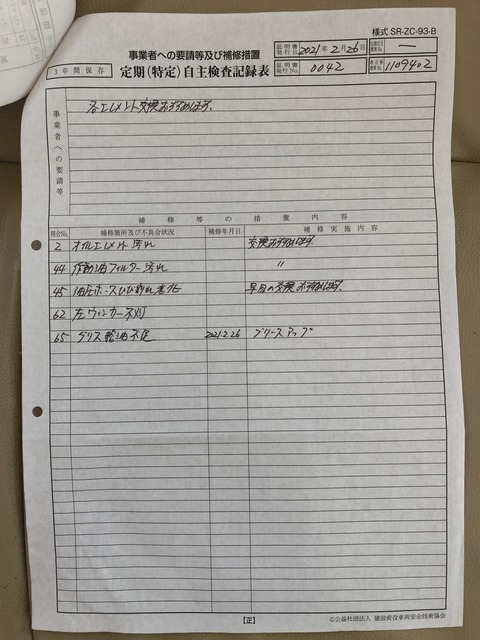 様式 SR-ZC-93-B
事業者への要請等及び補修措置
証明書発行日 2021年2月26日
3年間保存
定期(特定)自主検査記録表
証明書発行No. 0042
1109402
事業者への要請等
各エレメント交換おすすめします。
補修等の措置内容
照合No. 補修箇所及び不具合状況 補修年月日 補修実施内容
2 オイルエレメント汚れ 交換おすすめします。
44 作動油フィルター汚れ 〃
45 油圧ホースひび割れ老化 早目の交換おすすめします。
62 左ウィンカー不灯
65 グリス給油不足 2021.2.26 グリースアップ
【正】
©公益社団法人 建設荷役車両安全技術協会